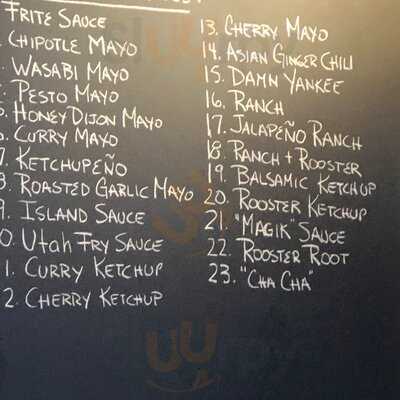 Frite Sauce
Chipotle Mayo
Wasabi Mayo
Pesto Mayo
Honey Dijon Mayo
Curry Mayo
7. Ketchupeño
8. Roasted Garlic Mayo
9. Island Sauce
0. Utah Fry Sauce
1. Curry Ketchup
2. Cherry Ketchup
13. Cherry Mayo
14. Asian Ginger Chili
15. Damn Yankee
16. Ranch
17. Jalapeño Ranch
18. Ranch + Rooster
19. Balsamic Ketchup
20. Rooster Ketchup
21. "Magik" Sauce
22. Rooster Root
23. "Cha Cha"